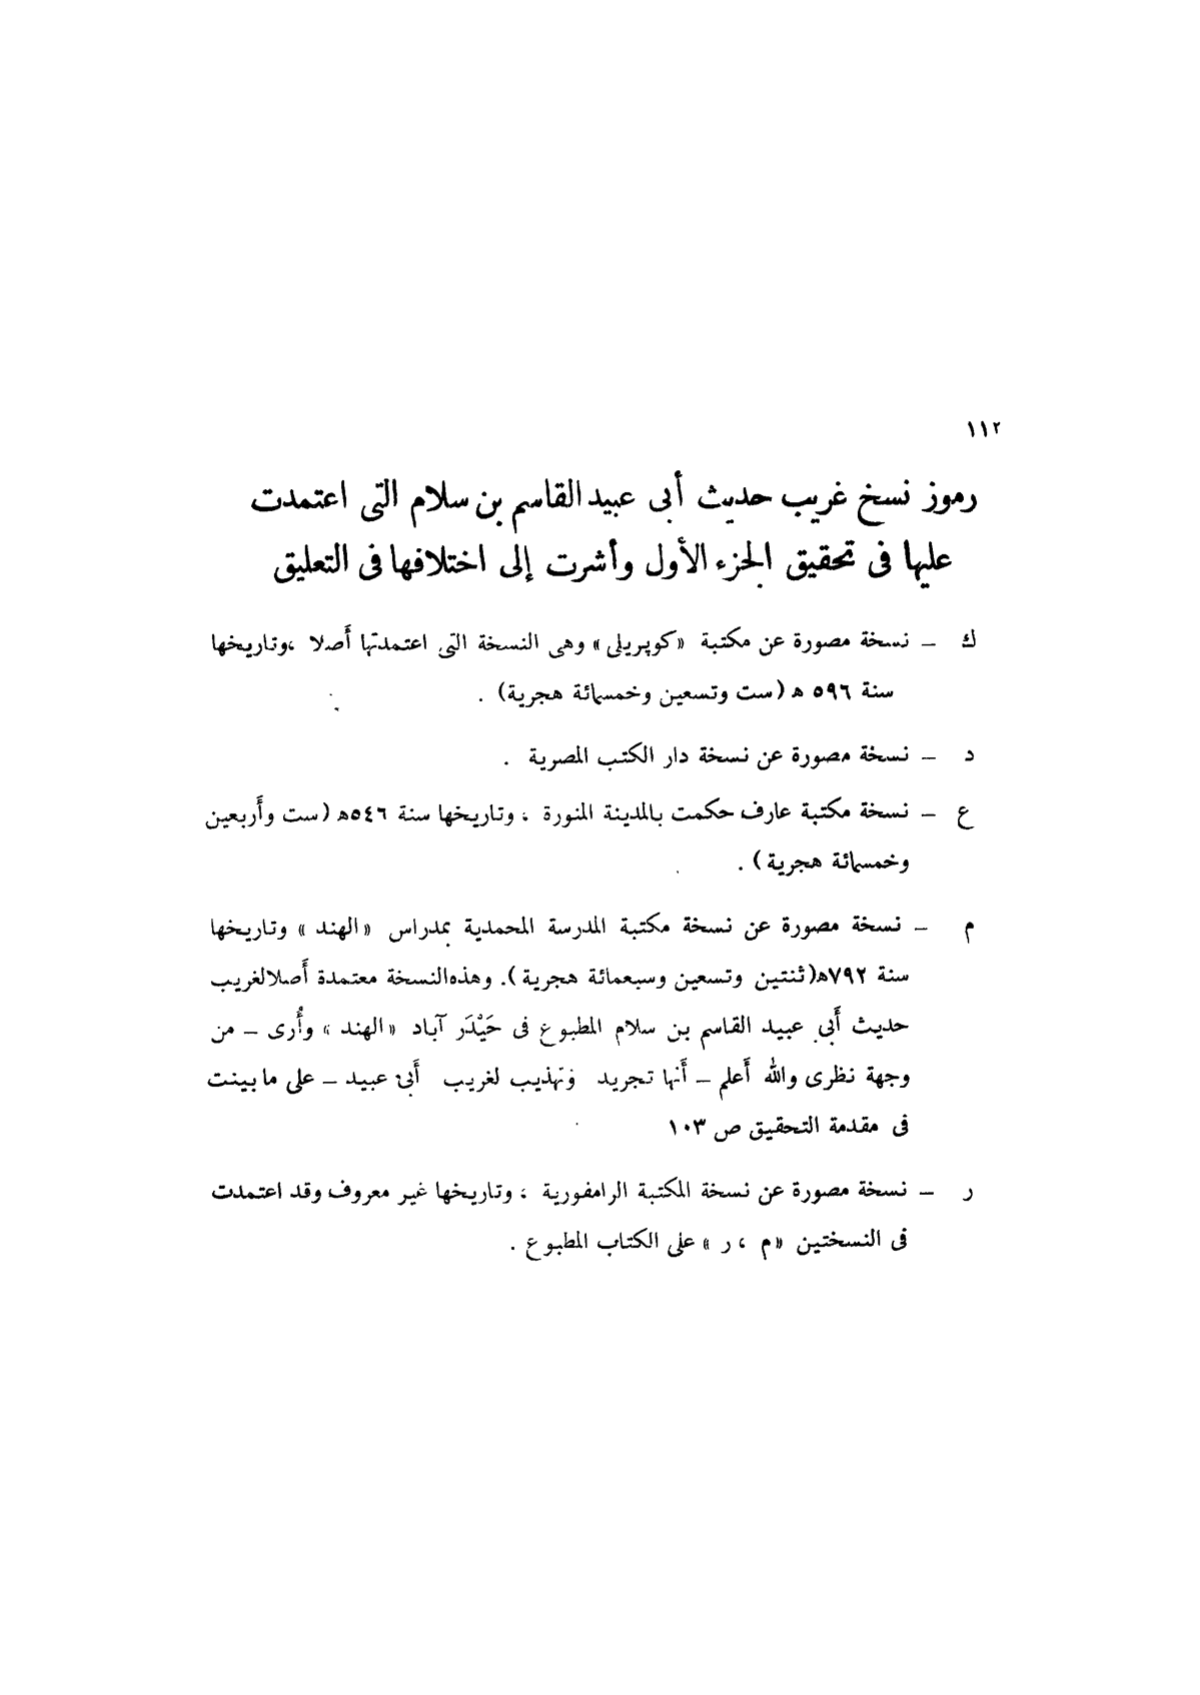 ١١٢
رموز نسخ غريب حديث أبى عبيد القاسم بن سلام التى اعتمدت
عليها فى تحقيق الجزء الأول وأشرت إلى اختلافها فى التعليق
ك – نسخة مصورة عن مكتبة «كوپريلى» وهى النسخة التى اعتمدتها أَصلا ،وتاريخها
سنة ٥٩٦ ه (ست وتسعين وخمسمائة هجرية) .
د – نسخة مصورة عن نسخة دار الكتب المصرية .
ع – نسخة مكتبة عارف حكمت بالمدينة المنورة ، وتاريخها سنة ٥٤٦ه (ست وأَربعين
وخمسمائة هجرية ) .
م – نسخة مصورة عن نسخة مكتبة المدرسة المحمدية بمدراس «الهند » وتاريخها
سنة ٧٩٢ه(ثنتين وتسعين وسبعمائة هجرية ). وهذه النسخة معتمدة أَصلا لغريب
حديث أَبى عبيد القاسم بن سلام المطبوع فى حَيْدَر آباد «الهند » وأُرى – من
وجهة نظرى والله أَعلم – أَنها تجريد وتهذيب لغريب أَبى عبيد – على ما بينت
فى مقدمة التحقيق ص ١٠٣
ر – نسخة مصورة عن نسخة المكتبة الرامفورية ، وتاريخها غير معروف وقد اعتمدت
فى النسختين «م ، ر » على الكتاب المطبوع .